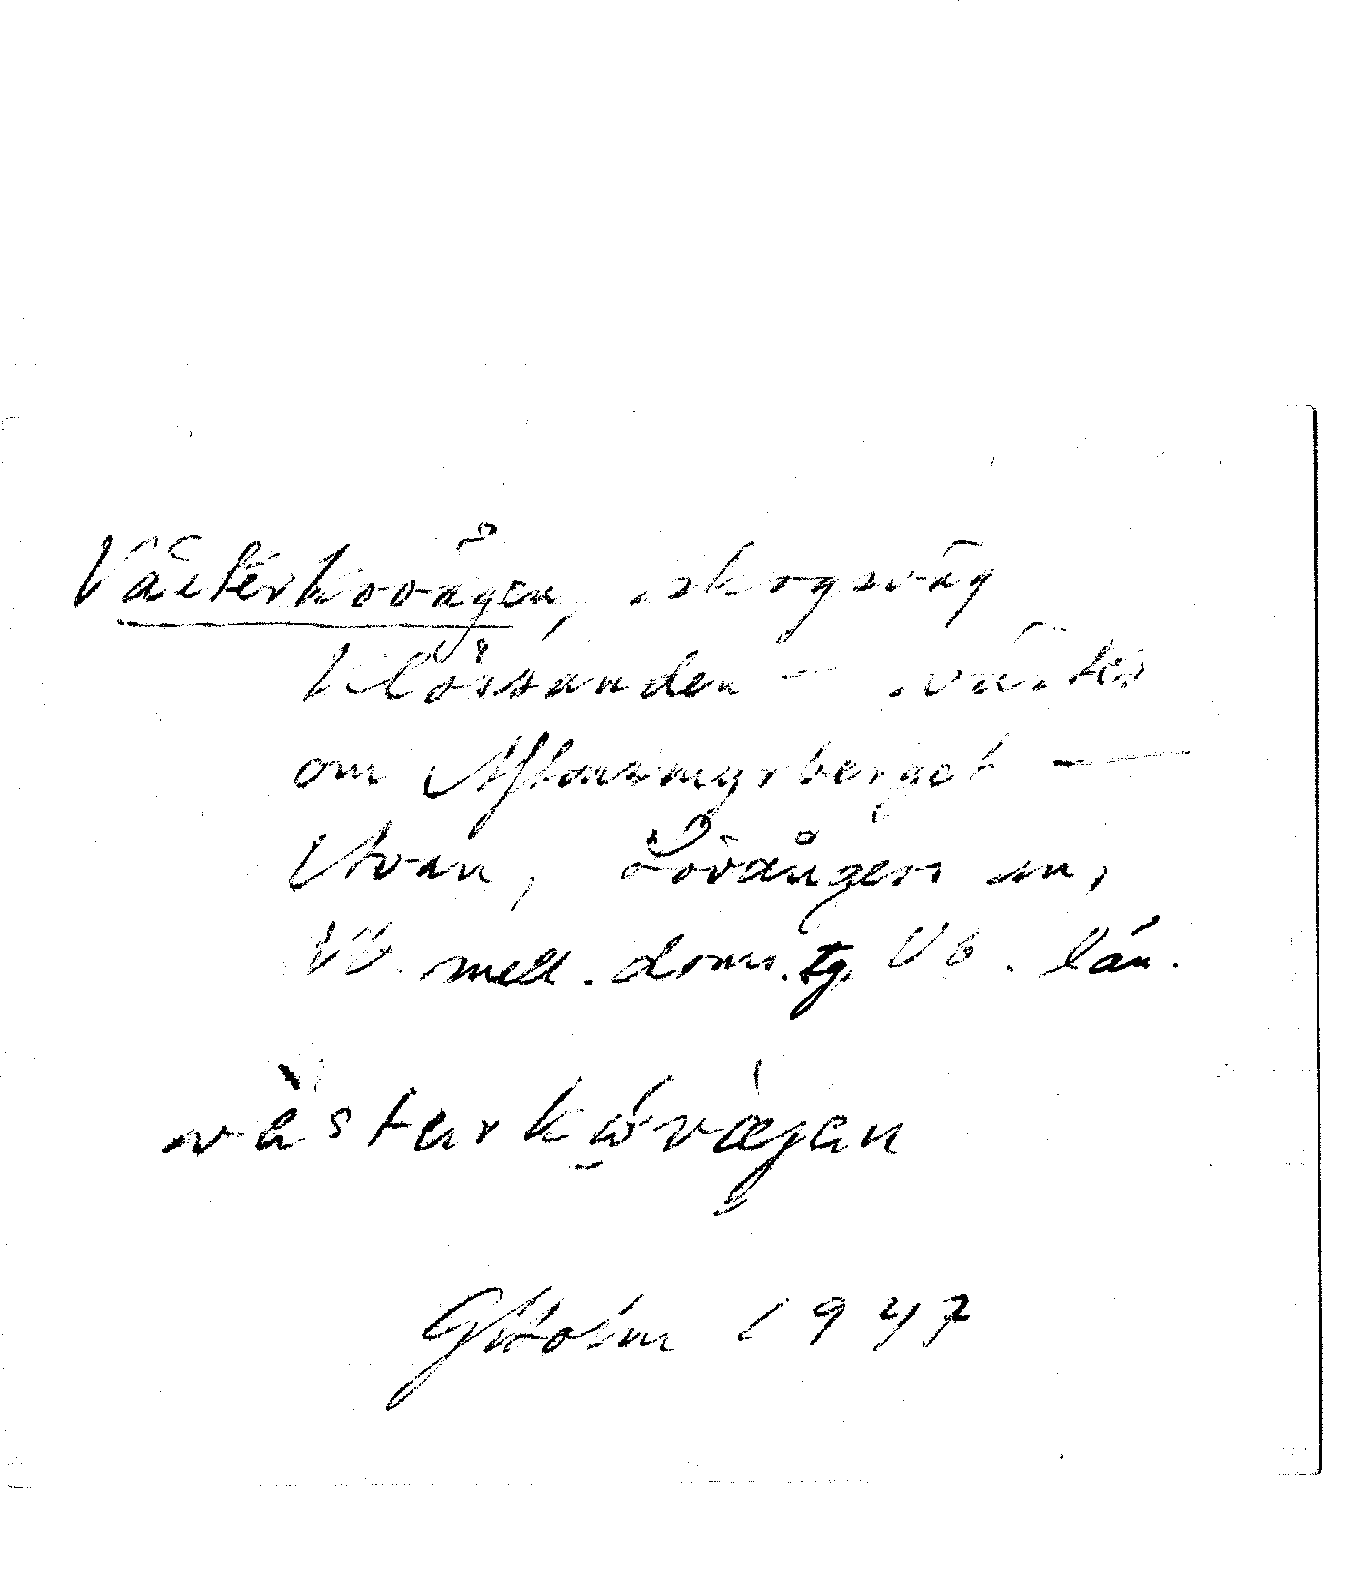 Västerkovägen, skogsväg
Klössanden – väster
om Aftonmyrberget —
Utvan, Lövångers sn,
Vb. mell. doms. tg. Vb. län.
västerkóvæ̀gen
GHolm 1947